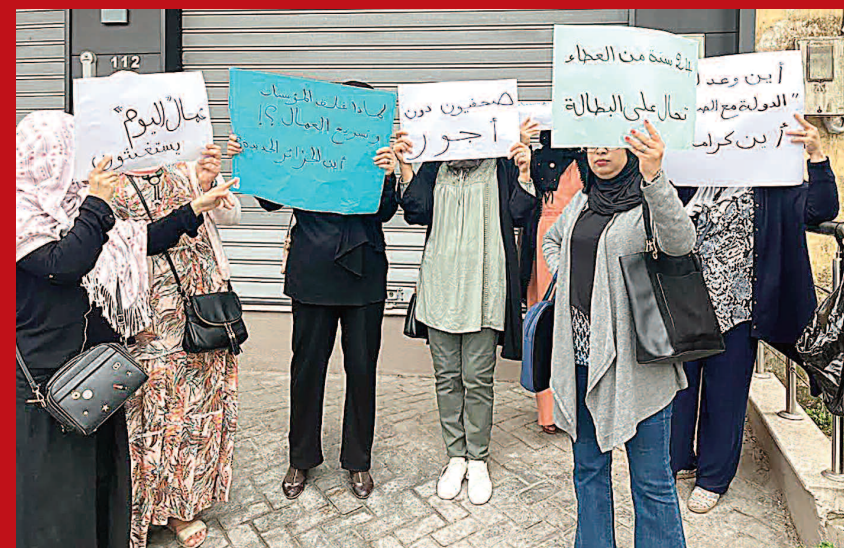 112
عمال "اليوم"
يستغيثون
لماذا تغلق المؤسسات
وتسرح العمال ؟!
أين الجزائر الجديدة
صحفيون دون
أجور
سنة من العطاء
نحال على البطالة
أين وعد
"الدولة مع
أين